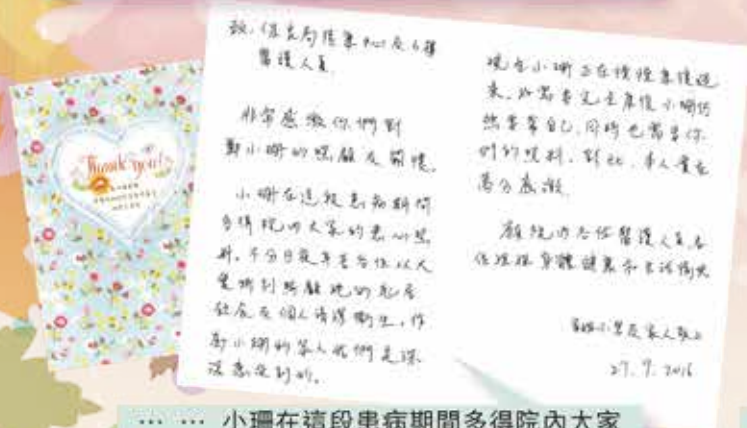 Thank you!
醫護人員
非常感激你們對
鄭小珊的照顧及關懷。
小珊在這段患病期間
多得院內大家的悉心照
料。不分日夜辛苦各位以大
愛
照顧她的起居
飲食及個人清潔衛生,作
為小珊的家人我們是深
深感受到的。
現在小珊正在慢慢康復過
來。
然要靠自己,同時也需要你
們的照料。對此,本人實在
萬分感激。
願院內各位醫護人員各
位
身體健康
家人敬上
27.9.2016
... ... 小珊在這段患病期間多得院內大家